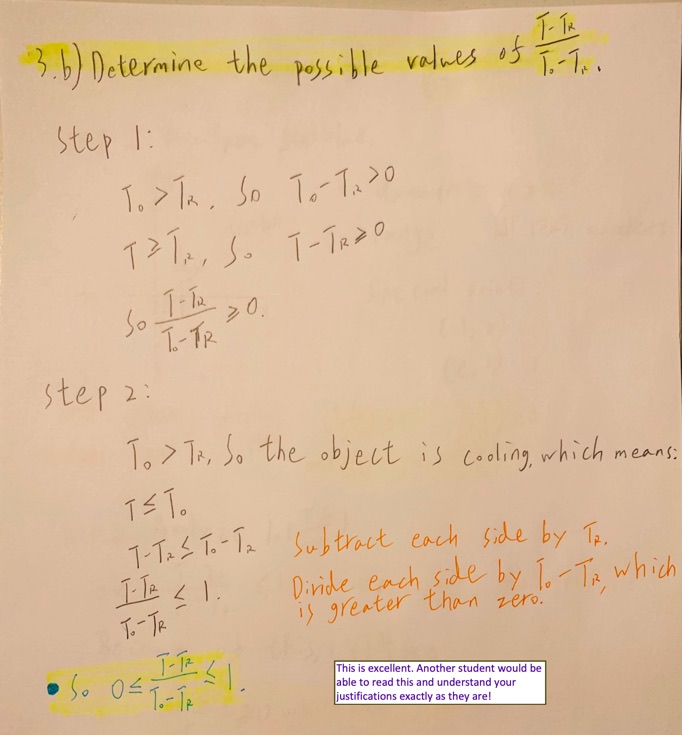 3.b) Determine the possible values of (T-T_R)/(T₀-T_R).
Step 1:
T₀ > T_R, So T₀-T_R > 0
T ≥ T_R, So T-T_R ≥ 0
So (T-T_R)/(T₀-T_R) ≥ 0.
Step 2:
T₀ > T_R, So the object is cooling, which means:
T ≤ T₀
T-T_R ≤ T₀-T_R Subtract each side by T_R.
(T-T_R)/(T₀-T_R) ≤ 1. Divide each side by T₀-T_R, which
is greater than zero.
• So 0 ≤ (T-T_R)/(T₀-T_R) ≤ 1.
This is excellent. Another student would be
able to read this and understand your
justifications exactly as they are!